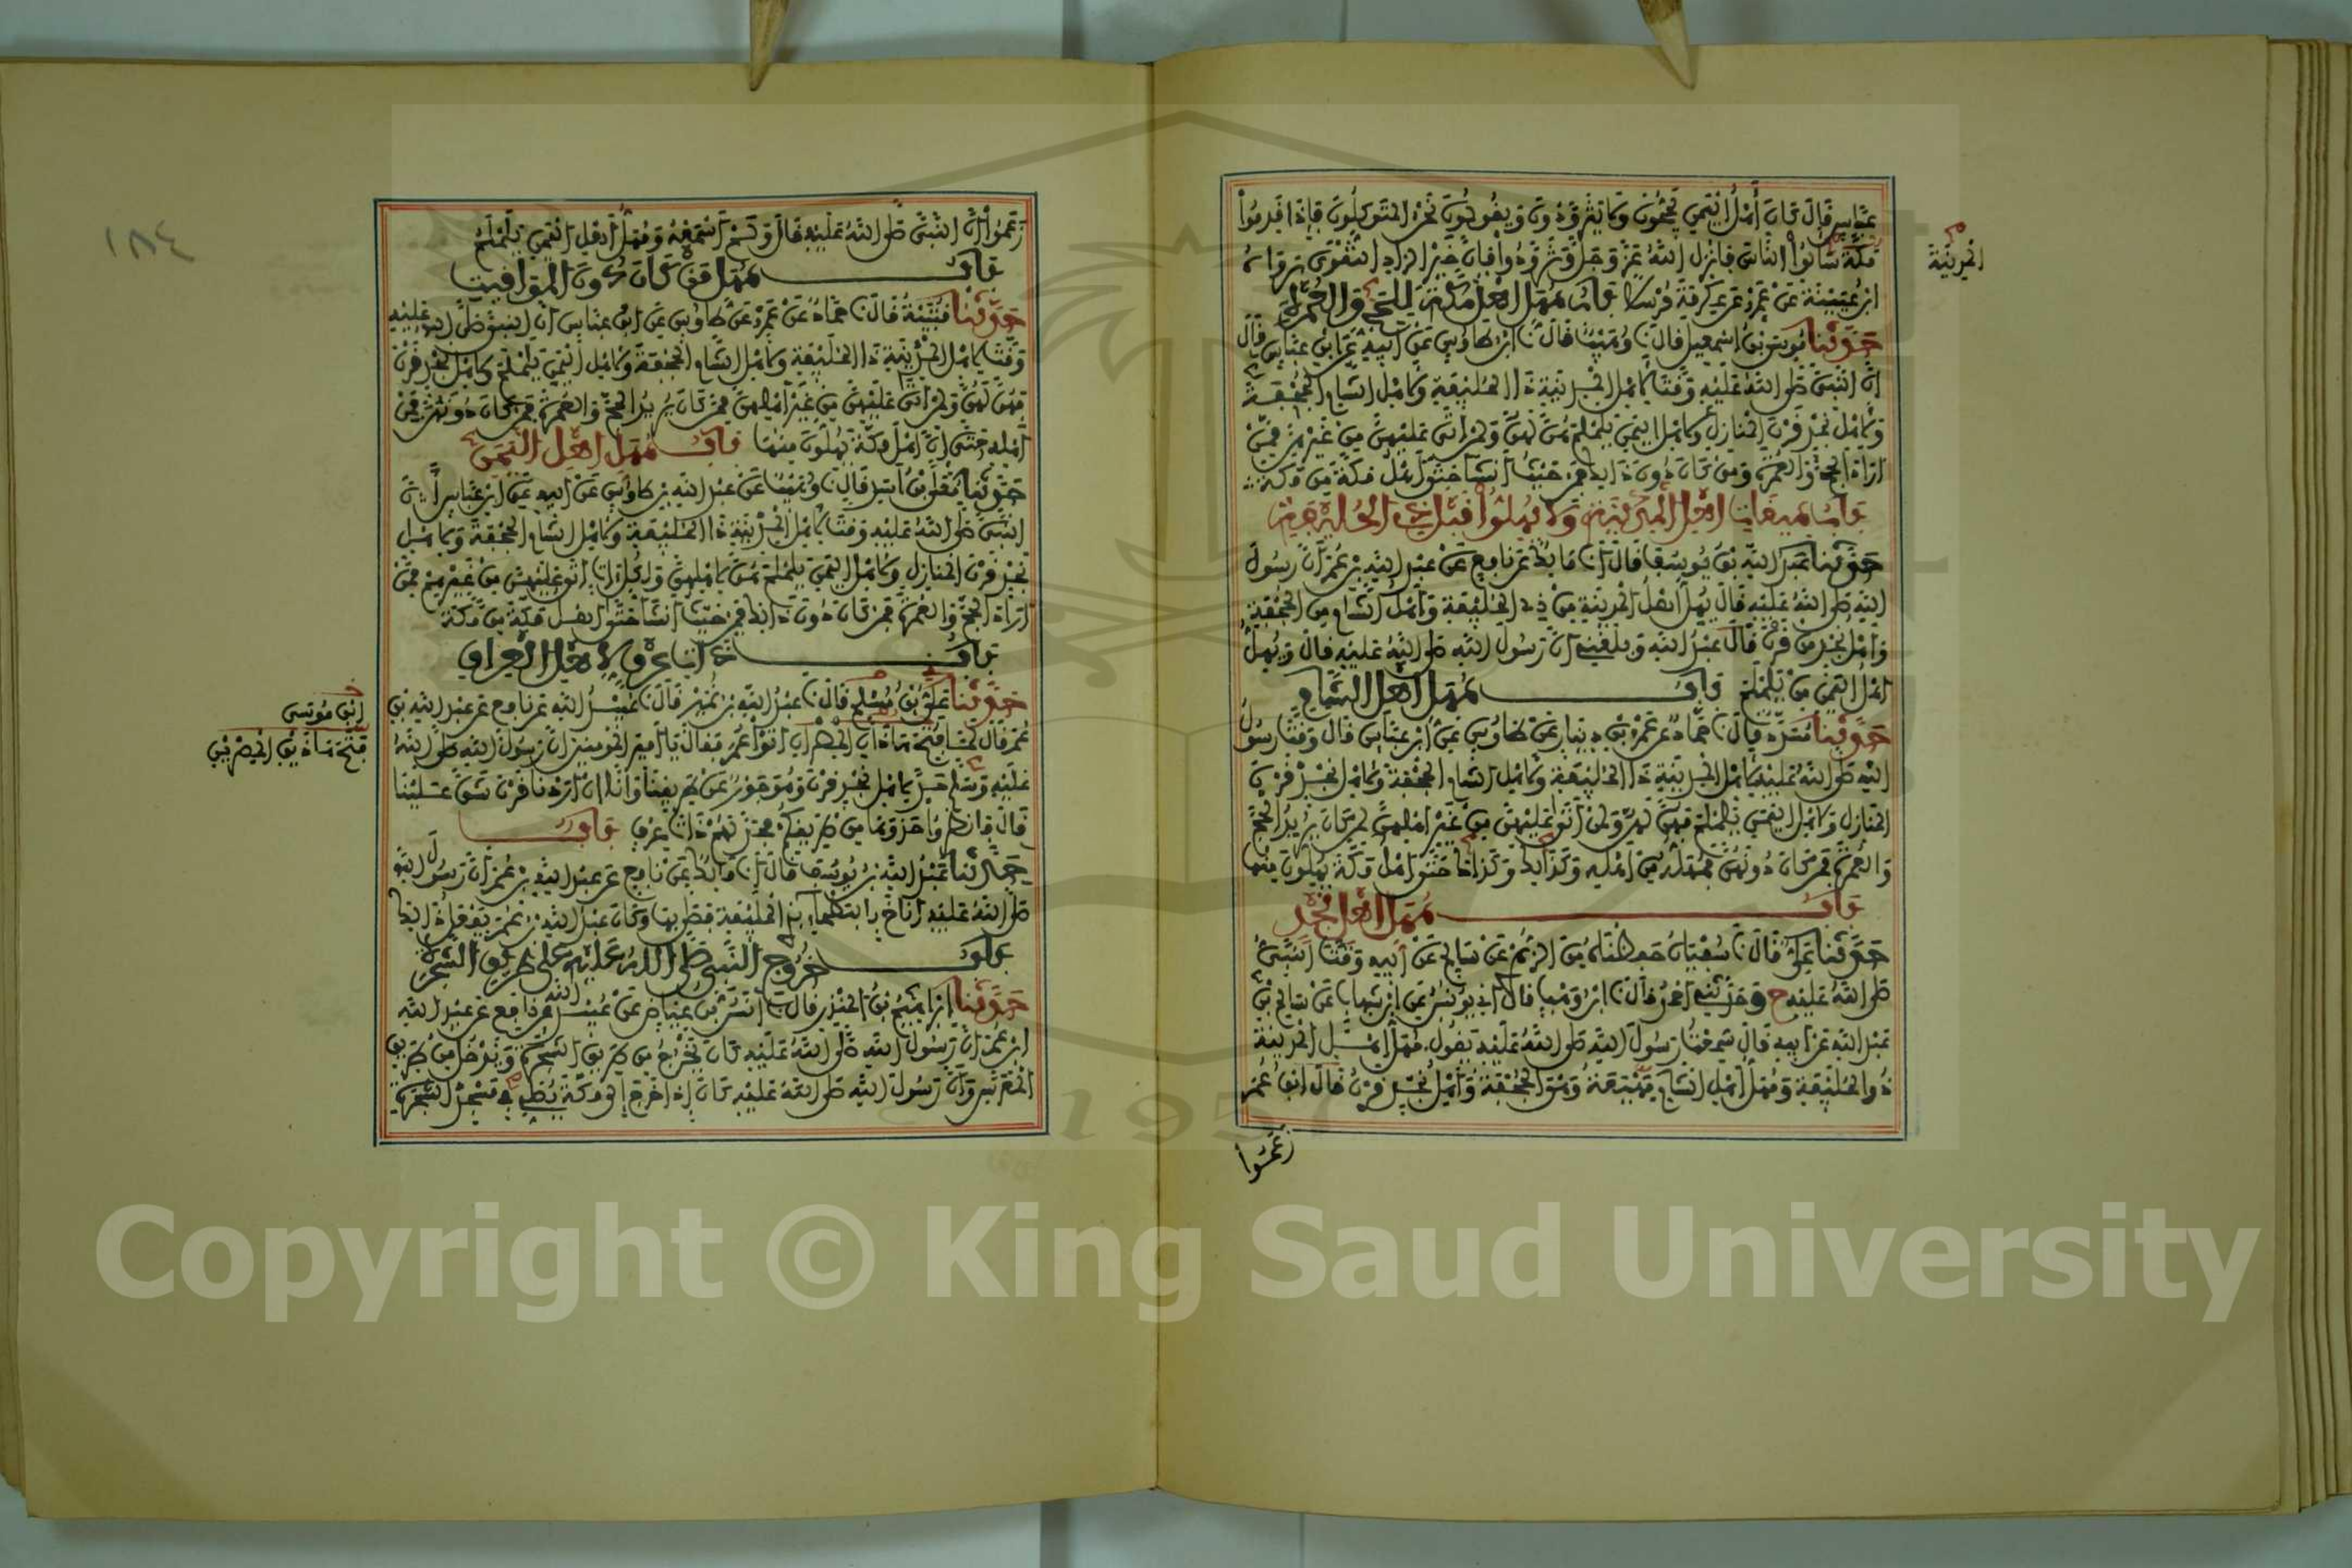 عباس قال كان أهل اليمن يحجون ولا يتزودون ويقولون نحن المتوكلون فإذا قدموا
المدينة
مكة سألوا الناس فأنزل الله عز وجل وتزودوا فإن خير الزاد التقوى رواه
ابن عيينة عن عمرو عن عكرمة مرسلا باب مهل أهل مكة للحج والعمرة
حدثنا موسى بن إسمعيل قال نا وهيب قال نا ابن طاوس عن أبيه عن ابن عباس قال
إن النبي صلى الله عليه وقت لأهل المدينة ذا الحليفة ولأهل الشام الجحفة
ولأهل نجد قرن المنازل ولأهل اليمن يلملم هن لهن ولمن أتى عليهن من غيرهن ممن
أراد الحج والعمرة ومن كان دون ذلك فمن حيث أنشأ حتى أهل مكة من مكة
باب ميقات أهل المدينة ولا يهلوا قبل ذي الحليفة
حدثنا عبد الله بن يوسف قال أنا مالك عن نافع عن عبد الله بن عمر أن رسول
الله صلى الله عليه قال يهل أهل المدينة من ذي الحليفة وأهل الشام من الجحفة
وأهل نجد من قرن قال عبد الله وبلغني أن رسول الله صلى الله عليه قال ويهل
أهل اليمن من يلملم باب مهل أهل الشام
حدثنا مسدد قال نا حماد عن عمرو بن دينار عن طاوس عن ابن عباس قال وقت رسول
الله صلى الله عليه لأهل المدينة ذا الحليفة ولأهل الشام الجحفة ولأهل نجد قرن
المنازل ولأهل اليمن يلملم فهن لهن ولمن أتى عليهن من غير أهلهن لمن كان يريد الحج
والعمرة فمن كان دونهن فمهله من أهله وكذلك وكذلك حتى أهل مكة يهلون منها
باب مهل أهل نجد
حدثنا علي قال نا سفيان حفظناه من الزهري عن سالم عن أبيه وقت النبي
صلى الله عليه ح وحدثني أحمد قال نا ابن وهب قال أخبرني يونس عن ابن شهاب عن سالم بن
عبد الله عن أبيه قال سمعت رسول الله صلى الله عليه يقول مهل أهل المدينة
ذو الحليفة ومهل أهل الشام مهيعة وهي الجحفة وأهل نجد قرن قال ابن عمر
زعموا
١٨٤
زعموا أن النبي صلى الله عليه قال ولم أسمعه ومهل أهل اليمن يلملم
باب مهل من كان دون المواقيت
حدثنا قتيبة قال نا حماد عن عمرو عن طاوس عن ابن عباس أن النبي صلى الله عليه
وقت لأهل المدينة ذا الحليفة ولأهل الشام الجحفة ولأهل اليمن يلملم ولأهل نجد قرن
فهن لهن ولمن أتى عليهن من غير أهلهن ممن كان يريد الحج والعمرة فمن كان دونهن فمن
أهله حتى إن أهل مكة يهلون منها باب مهل أهل اليمن
حدثنا معلى بن أسد قال نا وهيب عن عبد الله بن طاوس عن أبيه عن ابن عباس أن
النبي صلى الله عليه وقت لأهل المدينة ذا الحليفة ولأهل الشام الجحفة ولأهل
نجد قرن المنازل ولأهل اليمن يلملم هن لأهلهن ولكل آت أتى عليهن من غيرهم ممن
أراد الحج والعمرة فمن كان دون ذلك فمن حيث أنشأ حتى أهل مكة من مكة
باب ذات عرق لأهل العراق
حدثنا علي بن مسلم قال نا عبد الله بن نمير قال نا عبيد الله عن نافع عن عبد الله بن
ابن موسى
عمر قال لما فتح هذان المصران أتوا عمر فقالوا يا أمير المؤمنين إن رسول الله صلى الله
فتح هاذين المصرين
عليه وسلم حد لأهل نجد قرن وهو جور عن طريقنا وإنا إن أردنا قرن شق علينا
قال فانظروا حذوها من طريقكم فحد لهم ذات عرق باب
حدثنا عبد الله بن يوسف قال أنا مالك عن نافع عن عبد الله بن عمر أن رسول الله
صلى الله عليه أناخ بالبطحاء بذي الحليفة فصلى بها وكان عبد الله بن عمر يفعل ذلك
باب خروج النبي صلى الله عليه على طريق الشجرة
حدثنا إبراهيم بن المنذر قال نا أنس بن عياض عن عبيد الله عن نافع عن عبد الله
ابن عمر أن رسول الله صلى الله عليه كان يخرج من طريق الشجرة ويدخل من طريق
المعرس وأن رسول الله صلى الله عليه كان إذا خرج إلى مكة يصلي في مسجد الشجرة